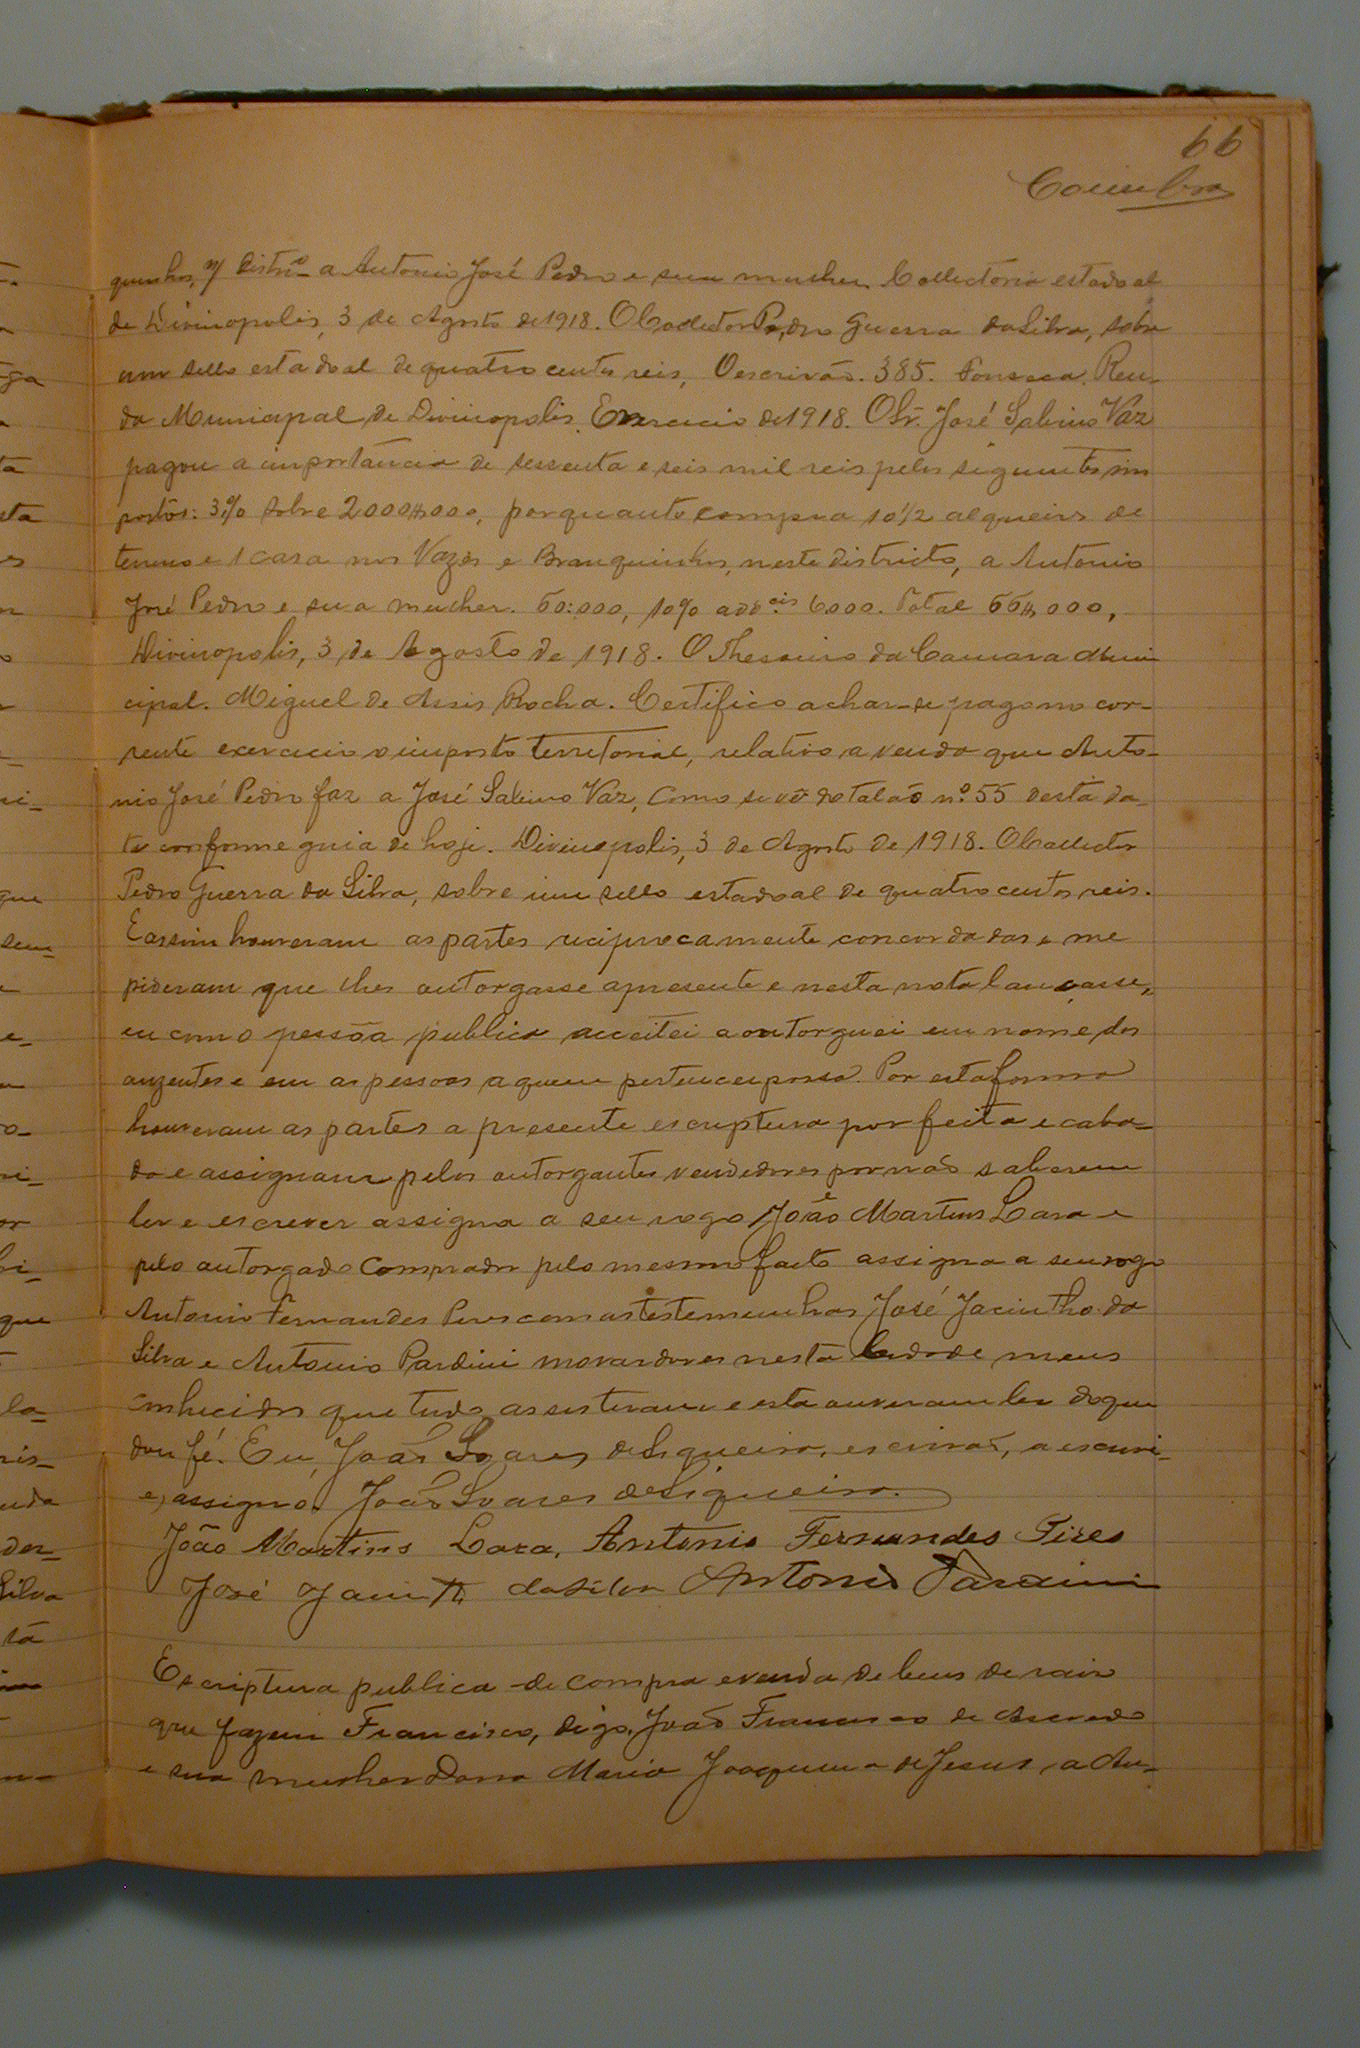 66
Coimbra
quinhos, n/ Distrº a Antonio José Pedro e sua mulher. Collectoria estadoal
de Divinopolis, 3 de Agosto de 1918. O Collector Pedro Guerra da Silva, sobre
um sello estadoal de quatro centos reis, O escrivão. 385. Fonseca. Ren-
da Municipal de Divinopolis. Exercicio de 1918. O Sr. José Sabino Vaz
pagou a importancia de sessenta e seis mil reis pelos seguintes im
postos: 3% sobre 2000$000, porquanto compra 10 1/2 alqueires de
terreno e 1 casa nos Vazes e Branquinhos, neste districto, a Antonio
José Pedro e sua mulher. 60:000, 10% add.cis 6000. Total 66$000,
Divinopolis, 3 de Agosto de 1918. O Thesoureiro da Camara Muni
cipal. Miguel de Assis Rocha. Certifico achar-se pago no cor-
rente exercicio o imposto territorial, relativo a venda que Anto-
nio José Pedro faz a José Sabino Vaz, como se vê do talão nº 55 desta da-
ta conforme guia de hoje. Divinopolis, 3 de Agosto de 1918. O Collector
Pedro Guerra da Silva, sobre um sello estadoal de quatro centos reis.
E assim houveram as partes reciprocamente concordadas e me
pideram que lhes outorgasse apresente e nesta nota lançasse,
eu como pessôa publica acceitei a outorguei em nome dos
auzentes e em as pessoas a quem pertencer possa. Por esta forma
houveram as partes a presente escriptura por feita e caba-
da e assignam pelos outorgantes vendedores por não saberem
ler e escrever assigna a seu rogo João Martins Lara e
pelo outorgado comprador pelo mesmo facto assigna a seu rogo
Antonio Fernandes Pires com as testemunhas José Jacintho da
Silva e Antonio Pardini moradores nesta cidade meus
conhecidos que tudo assistiram e esta ouveram ler do que
dou fé. Eu, João Soares de Siqueira, escrivão, a escrevi
e, assigno. João Soares de Siqueira.
João Martins Lara, Antonio Fernandes Pires
José Jacintho da Silva Antonio Pardini
Escriptura publica de compra e venda de bens de raiz
que fazem Francisco, digo, João Francisco de Azevedo
e sua mulher Dona Maria Joaquina de Jesus, a An-